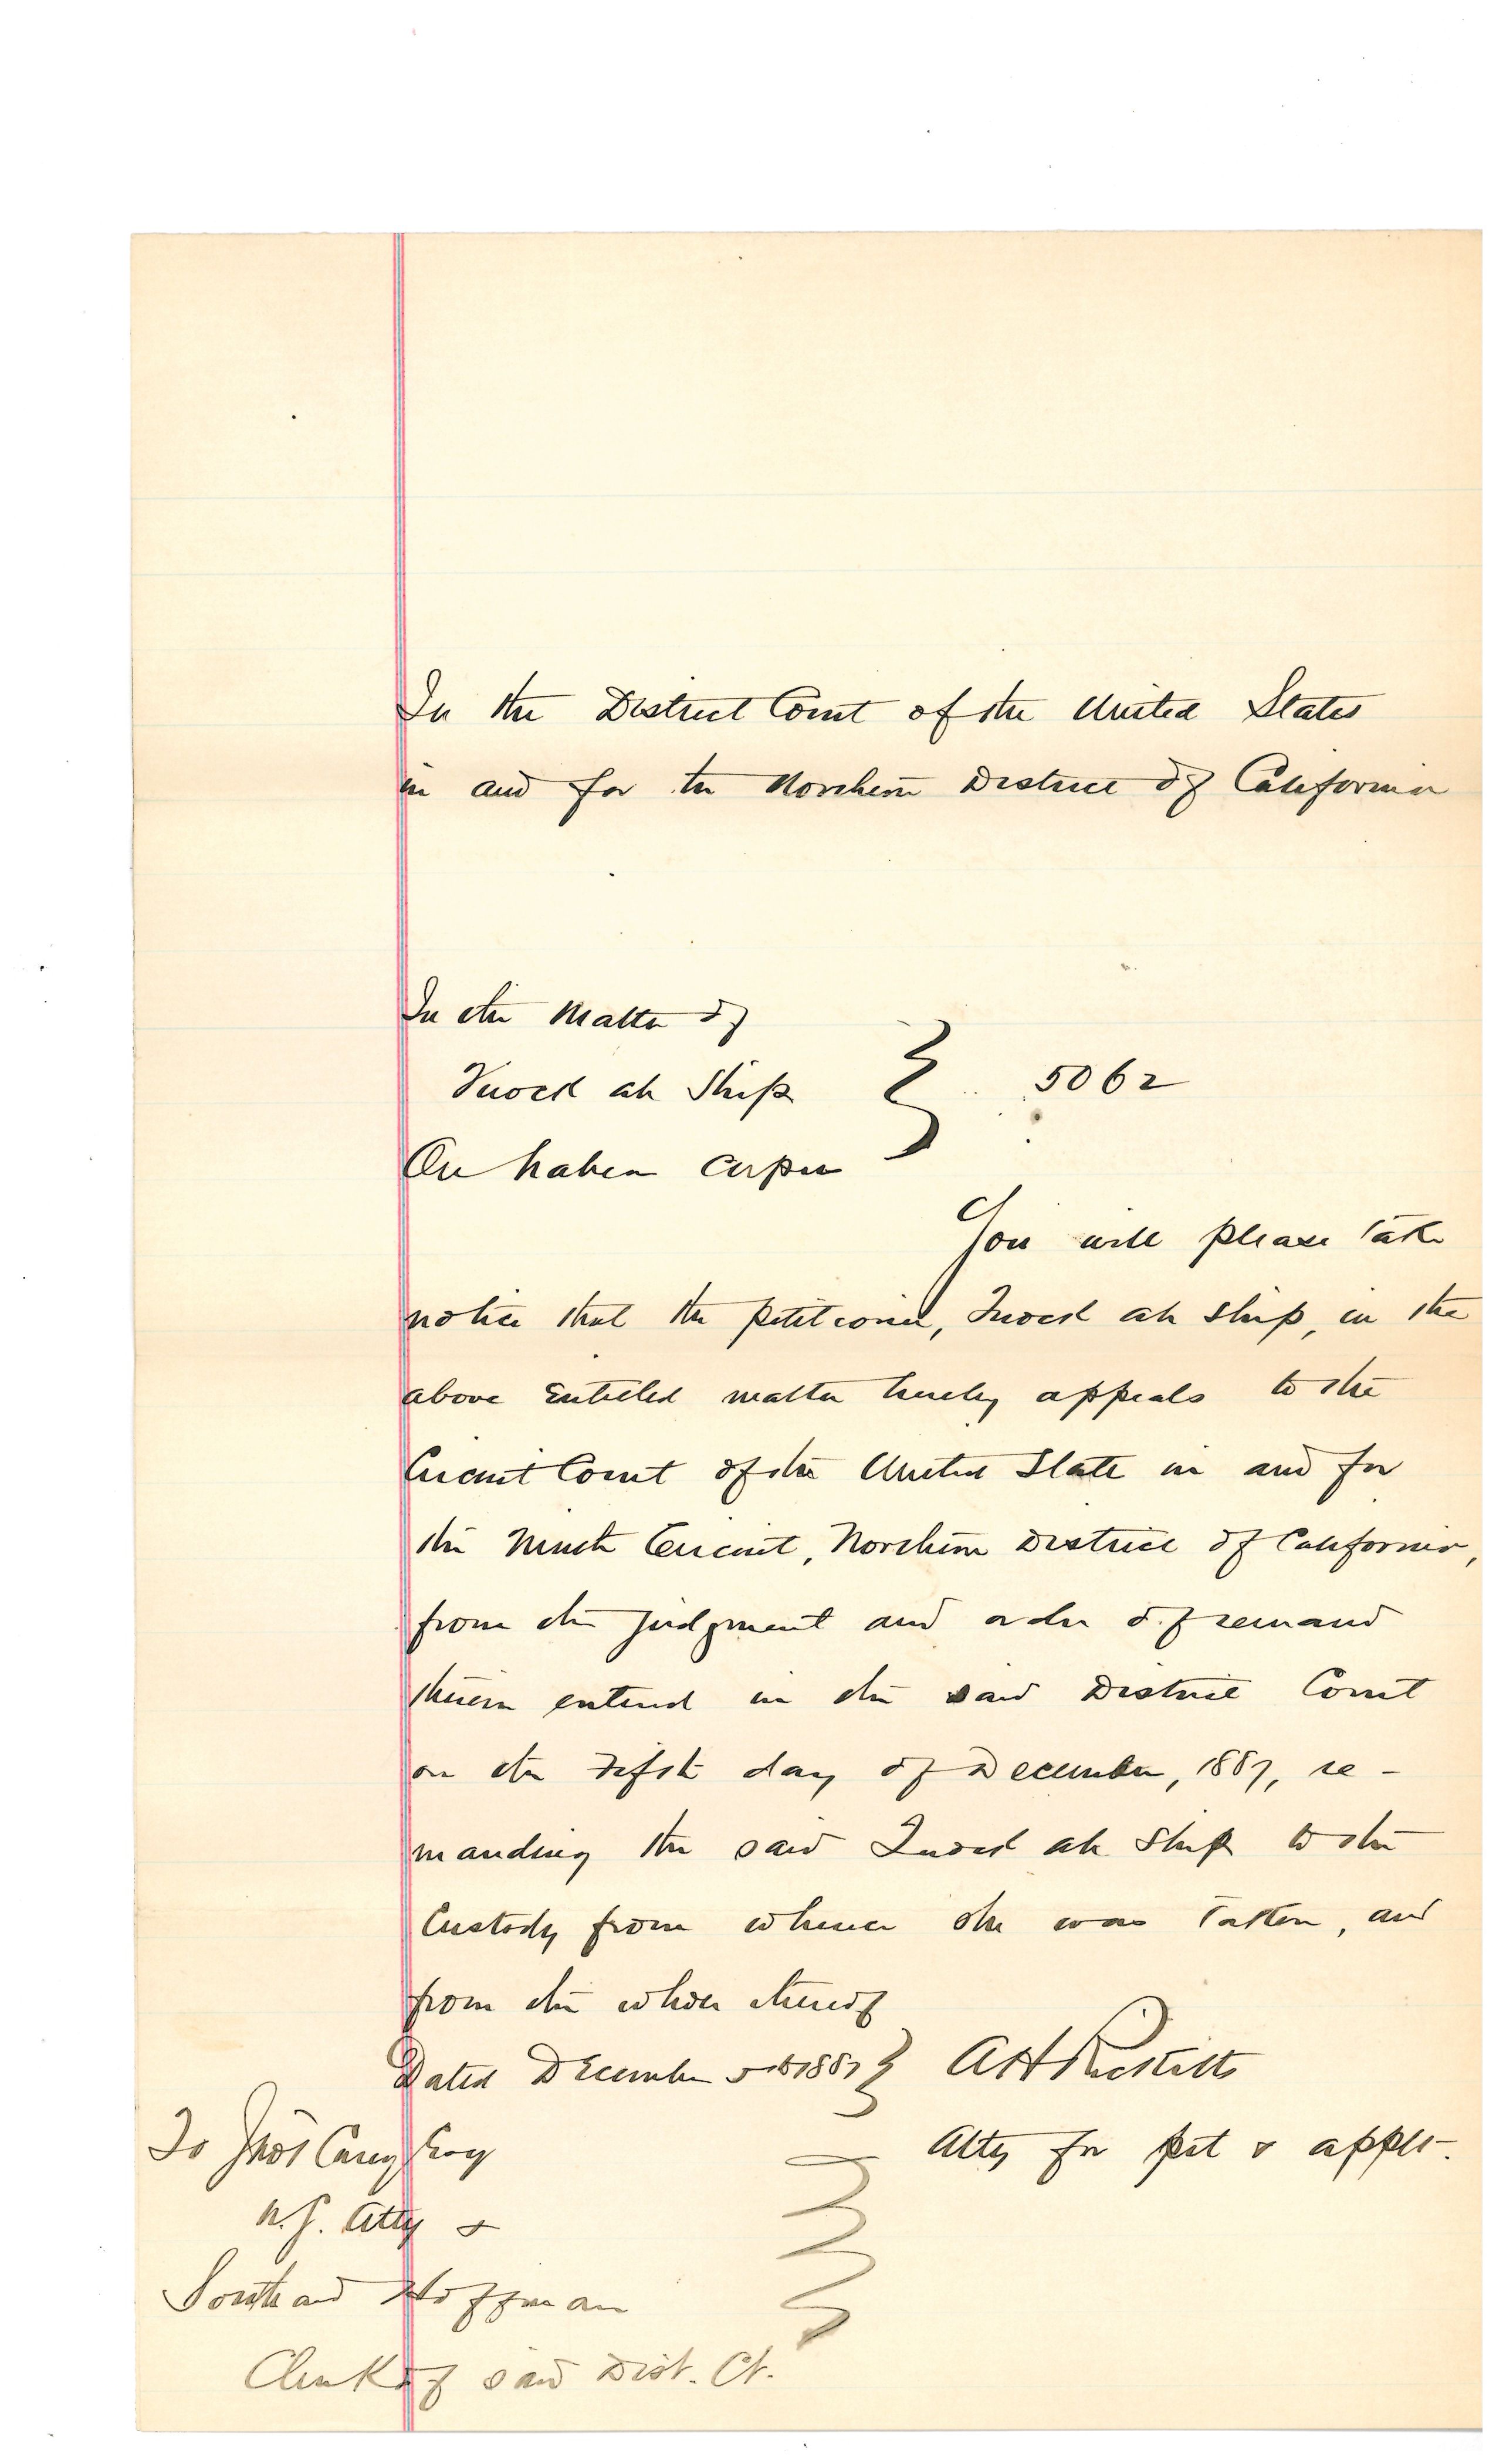 In the District Court of the United States
in and for the Northern District of California
In the Matter of
ah Ship
5062
On habeas corpus
You will please take
notice that the petitioner, ah Ship, in the
above entitled matter hereby appeals to the
Circuit Court of the United State in and for
the Ninth Circuit, Northern District of California,
from the judgment and order of remand
therein entered in the said District Court
on the fifth day of December, 1887, re-
manding the said ah Ship to the
Custody from whence she was taken, and
from the whole thereof
Dated December 5th 1887
Atty for pet & applt.
To Jno T Carey Esq
U.S. Atty &
Southard Hoffman
Clerk of said Dist. Ct.